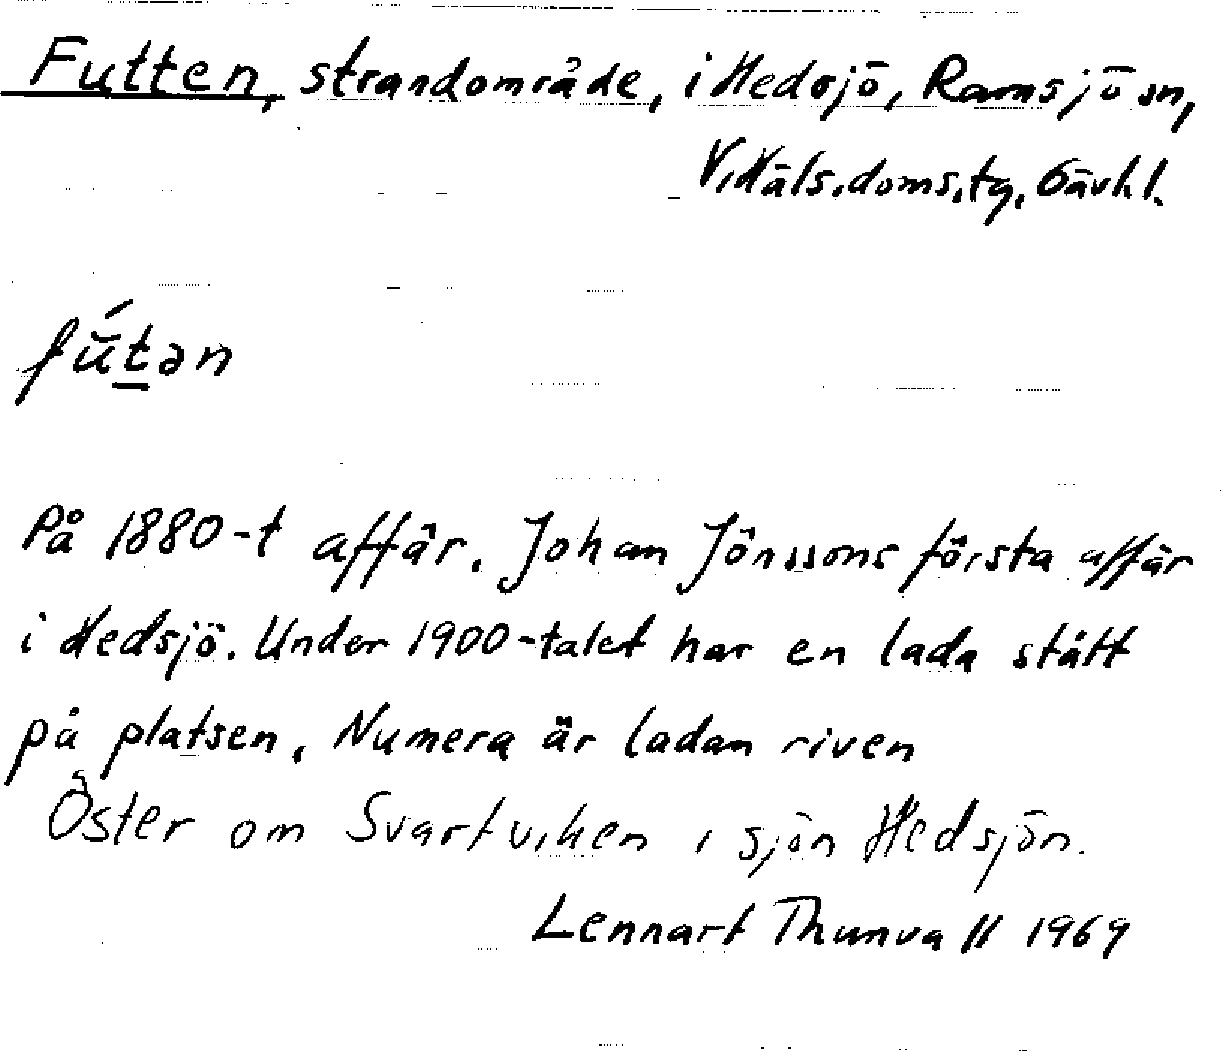 Futten, strandområde, i Hedsjö, Ramsjö sn,
V. Häls. doms. tg, Gävl. l.
fútən
På 1880-t affär. Johan Jönssons första affär
i Hedsjö. Under 1900-talet har en lada stått
på platsen. Numera är ladan riven
Öster om Svartviken i sjön Hedsjön.
Lennart Thunvall 1969